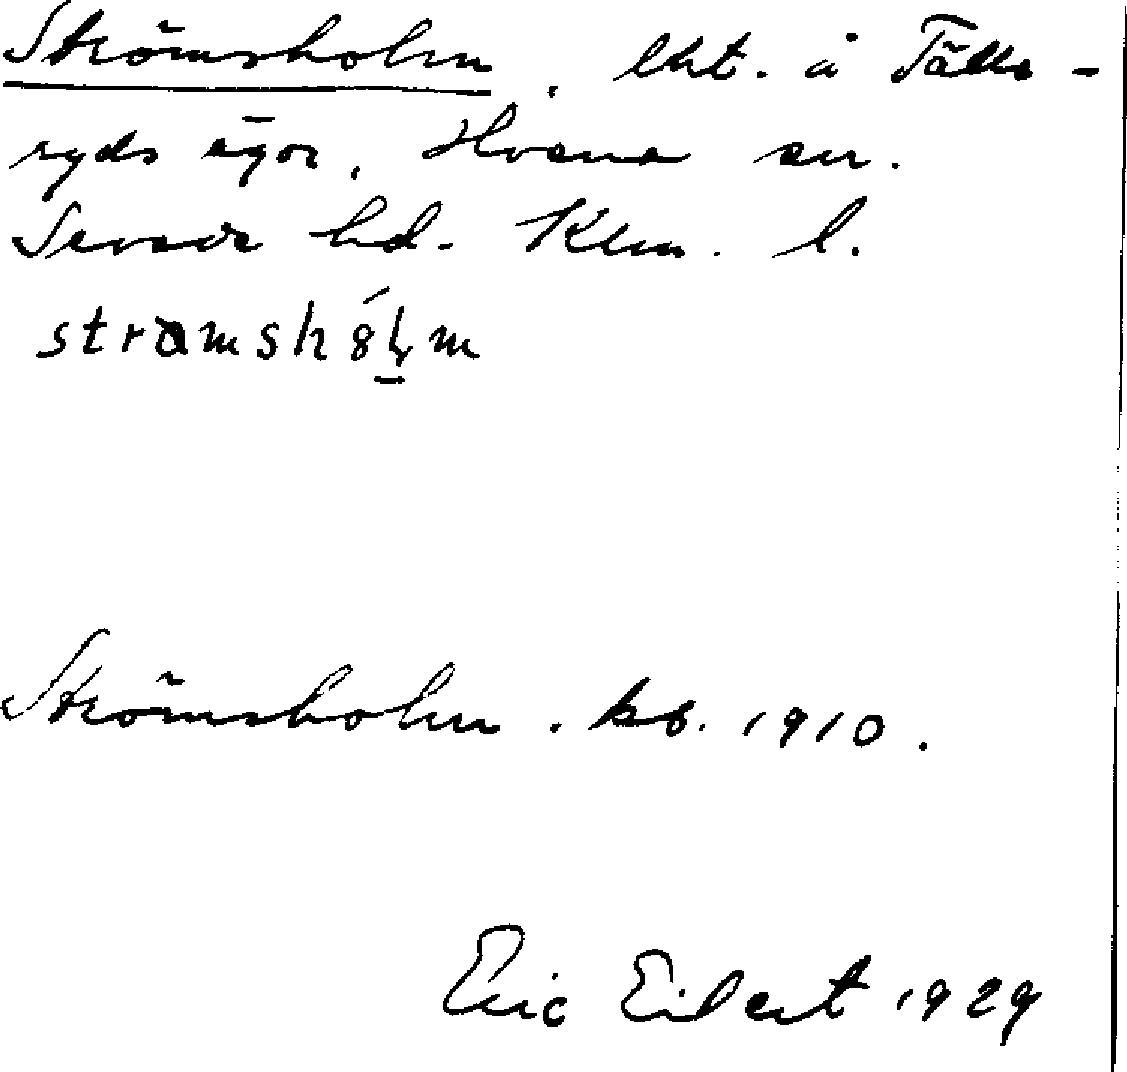 Strömsholm, lht. å Tälle-
ryds ägor, Hvena sn.
Sevede hd. Klm. l.
Strömsholm. kb. 1910.
Eric Eilert 1929